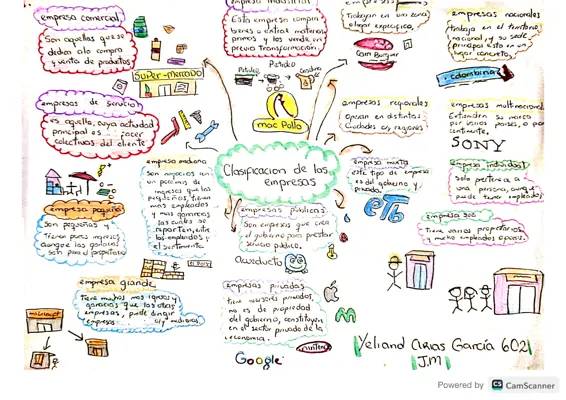 empresa comercial
Son aquellas que se
dedica a la compra
y venta de productos
Super-mercado
empresa industrial
Esta empresa compra
bienes o entra materias
primas y las vende en
previa transformación.
Petaldo
mac Pollo
Trabajan en una zona
o lugar específico.
Corn Burguer
empresas nacionales
trabaja en el territorio
nacional, y su sede
principal esta en un
lugar concreto.
colombina
empresas de servicio
es aquella, cuya actividad
principal es
colectivos del cliente
empresas regionales
operan en distintas
ciudades o regiones
empresas multinacional
Extienden su marca
por varios países, o por
continente.
SONY
Clasificacion de las
empresas
empresa mediana
Son negocios con
un poco más de
ingresos que las
pequeñas, tienen
mas empleados
y mas ganancias
las cuales se
reparten, entre
los empleados y
el sustento
empresa mixta
este tipo de empresa
es del gobierno y
privado.
eTb
empresa individual
solo pertenece a
una persona, aunque
puede tener empleados
empresa pequeña
Son pequeñas y
tienen pocos ingresos
aunque las ganancias
son para el propietario
empresas públicas
Son empresas que crea
el gobierno para prestar
servicio público.
Acueducto
empresa soc
Tiene varios propietarios
y mucho empleados
empresa grande
Tiene muchos mas ingresos y
ganancias que las otras
empresas, puede dirigir
empresas
y medianas
microsoft
empresas privadas
tiene inversores privados,
no es de propiedad
del gobierno, constituyen
en el sector privado de la
economia.
Google
nintendo
Yeliand Arias García 602
J.M
Powered by CS CamScanner